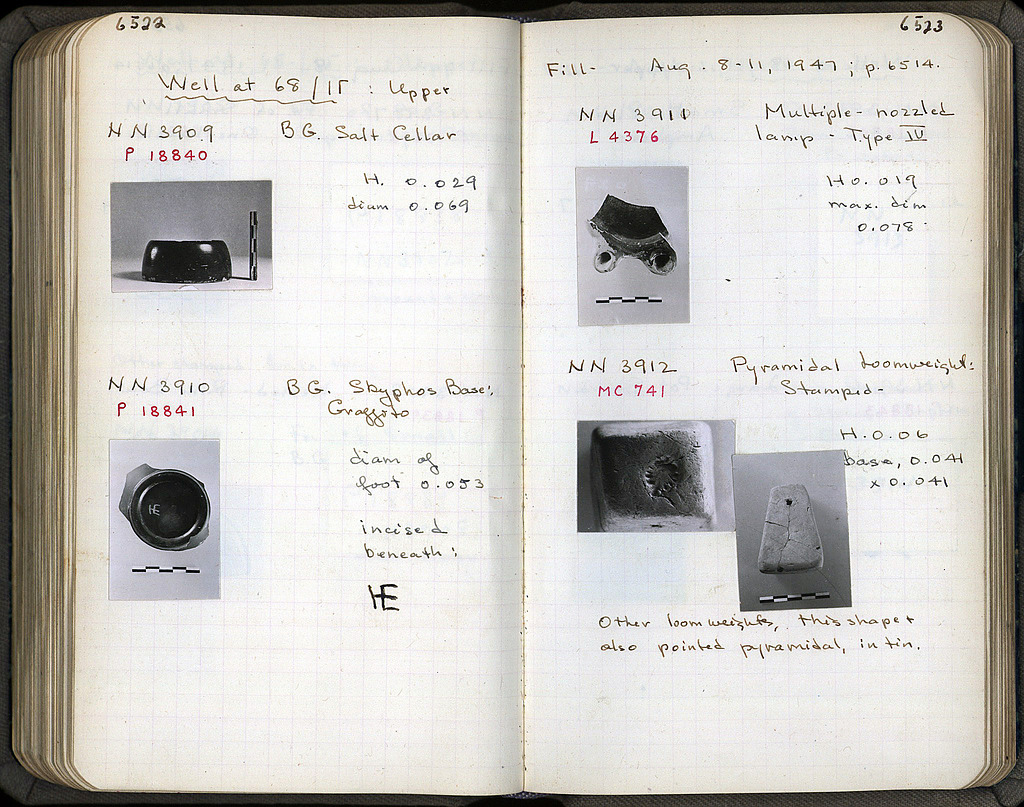 6522
Well at 68/ΙΓ : Upper
NN 3909 B G. Salt Cellar
P 18840
H. 0.029
diam 0.069
NN 3910 B G. Skyphos Base:
P 18841 Graffito
diam of
foot 0.053
incised
beneath:
6523
Fill- Aug. 8-11, 1947; p. 6514.
NN 3911 Multiple-nozzled
L 4376 lamp - Type IV
H 0.019
max. dim
0.078
NN 3912 Pyramidal Loomweight:
MC 741 Stamped-
H. 0.06
base, 0.041
x 0.041
Other loomweights, this shape +
also pointed pyramidal, in tin.